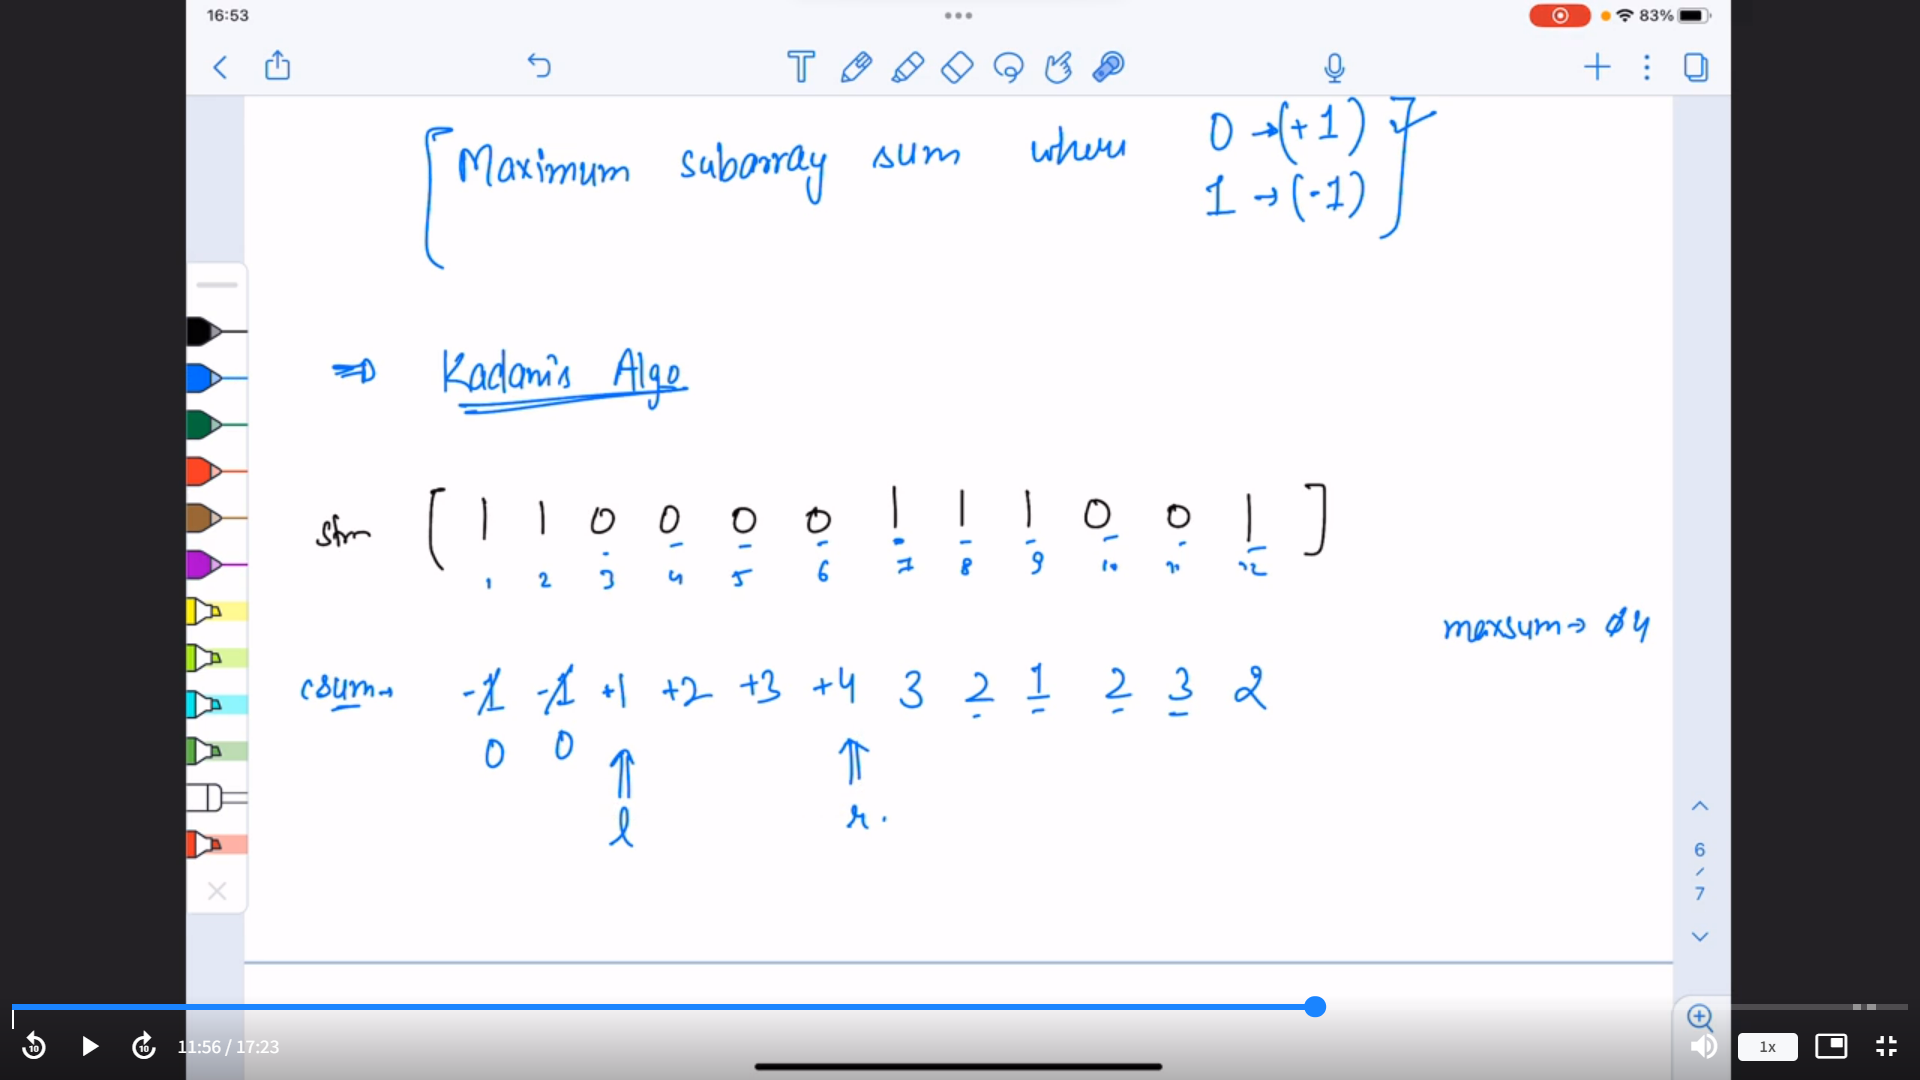 16:53
83%
Maximum subarray sum where 0 → (+1)
1 → (-1)
⇒ Kadani's Algo
[ 1 1 0 0 0 0 1 1 1 0 0 1 ]
1 2 3 4 5 6 7 8 9 10 11 12
maxsum → 0 4
csum → -1 -1 +1 +2 +3 +4 3 2 1 2 3 2
0 0
l r.
6
/
7
10 10 11:56 / 17:23 1x